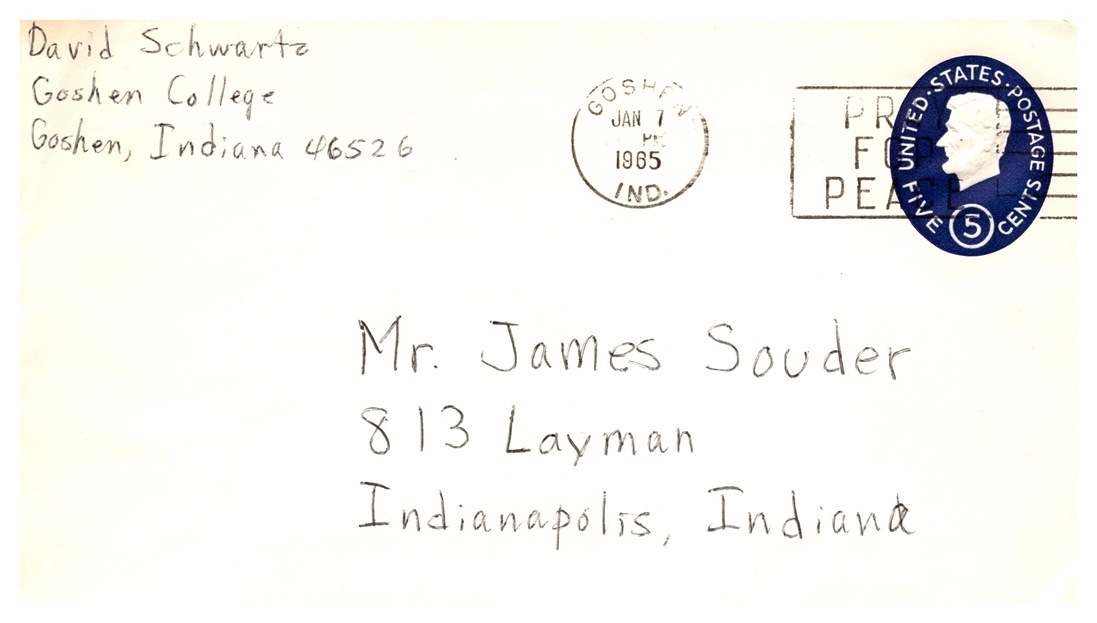 David Schwartz
Goshen College
Goshen, Indiana 46526
GOSHEN
JAN 7
PM
1965
IND.
PRAY
FOR
PEACE
UNITED · STATES · POSTAGE
FIVE 5 CENTS
Mr. James Souder
813 Layman
Indianapolis, Indiana